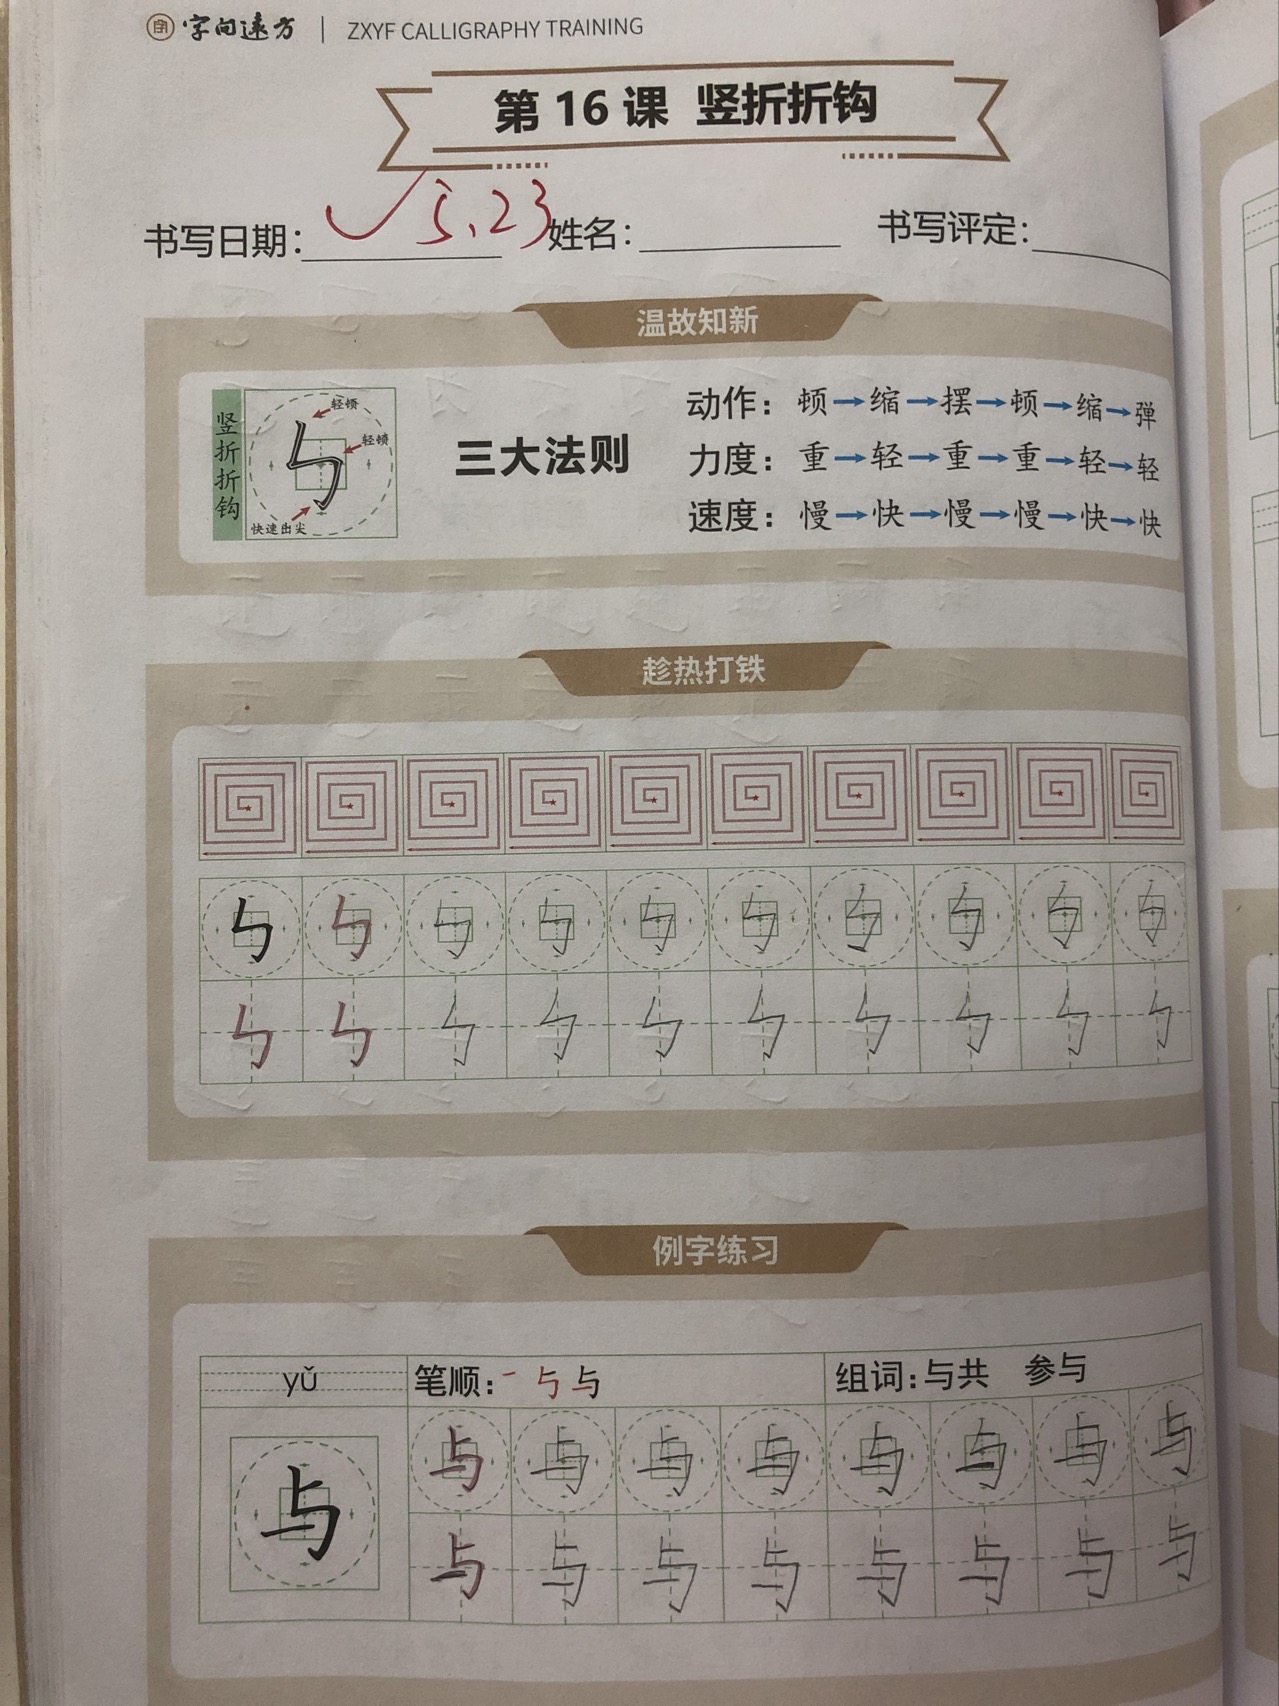 字向远方 | ZXYF CALLIGRAPHY TRAINING
第 16 课 竖折折钩
书写日期: 5.23 姓名: 书写评定:
温故知新
竖折折钩
轻顿
轻顿
快速出尖
三大法则
动作: 顿→缩→摆→顿→缩→弹
力度: 重→轻→重→重→轻→轻
速度: 慢→快→慢→慢→快→快
趁热打铁
例字练习
yǔ 笔顺: 一 与 与 组词: 与共 参与
与 与 与 与 与 与 与 与 与
与 与 与 与 与 与 与 与